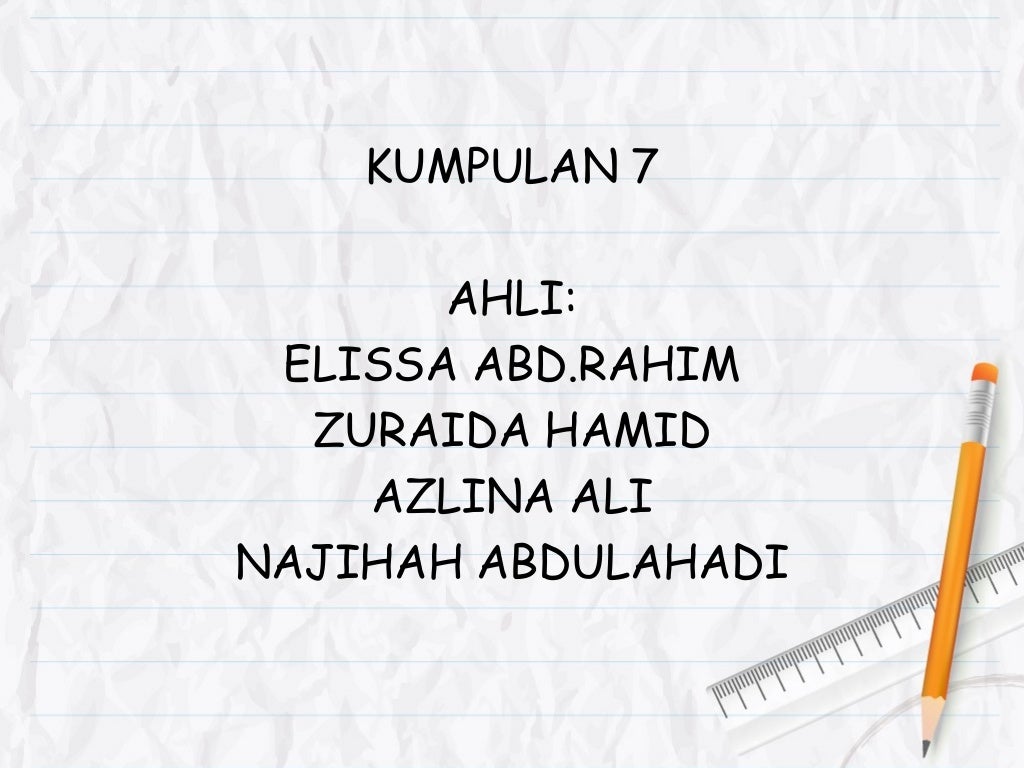 KUMPULAN 7
AHLI:
ELISSA ABD.RAHIM
ZURAIDA HAMID
AZLINA ALI
NAJIHAH ABDULAHADI